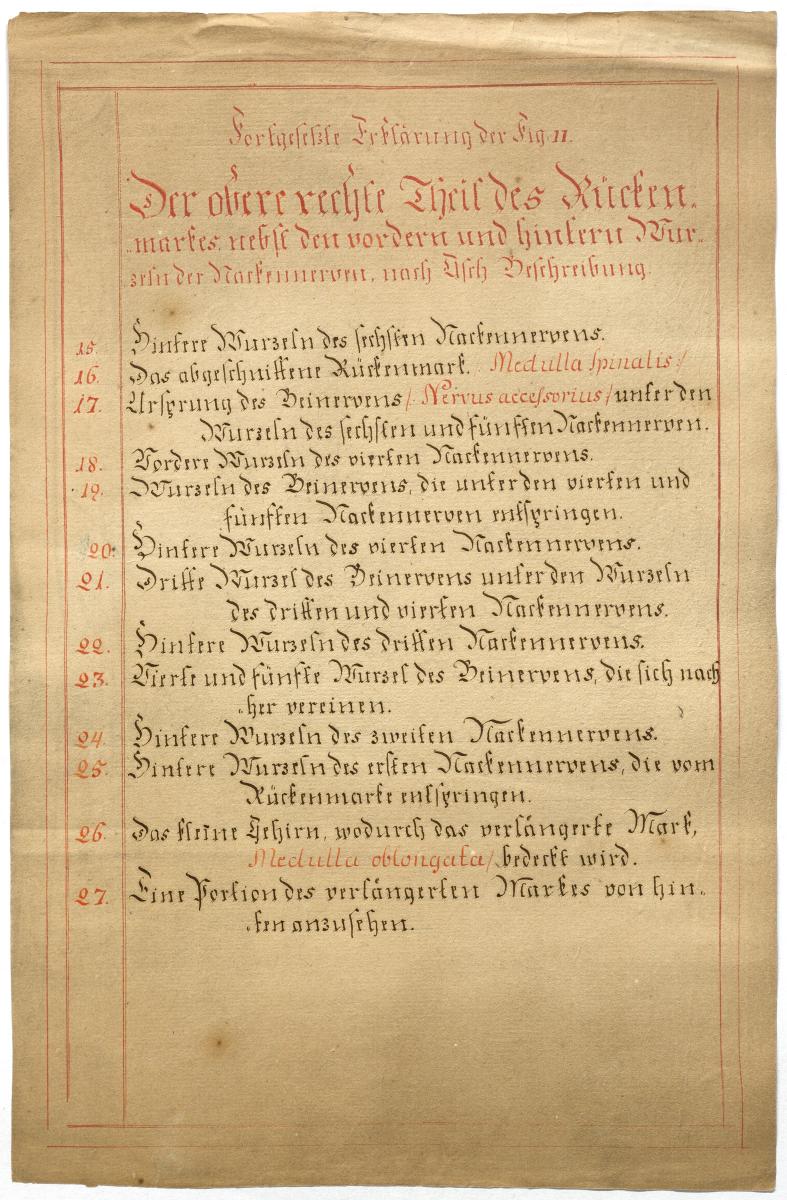 Fortgesetzte Erklärung der Fig. 11.
Der obere rechte Theil des Rücken„
„markes, nebst den vordern und hintern Wur„
„zeln der Nackennerven, nach Asch Beschreibung.
15. Hintere Wurzeln des sechsten Nackennervens.
16. Das abgeschnittene Rückenmark. /Medulla spinalis/
17. Ursprung des Beinervens /Nervus accessorius/ unter den
Wurzeln des sechsten und fünften Nackennerven.
18. Vordere Wurzeln des vierten Nackennervens.
19. Wurzeln des Beinervens, die unter den vierten und
fünften Nackennerven entspringen.
20. Hintere Wurzeln des vierten Nackennervens.
21. Dritte Wurzel des Beinervens unter den Wurzeln
des dritten und vierten Nackennervens.
22. Hintere Wurzeln des dritten Nackennervens.
23. Vierte und fünfte Wurzel des Beinervens, die sich nach
„her vereinen.
24. Hintere Wurzeln des zweiten Nackennervens.
25. Hintere Wurzeln des ersten Nackennervens, die vom
Rückenmarke entspringen.
26. Das kleine Gehirn, wodurch das verlängerte Mark,
Medulla oblongata/ bedeckt wird.
27. Eine Portion des verlängerten Markes von hin„
„ten anzusehen.